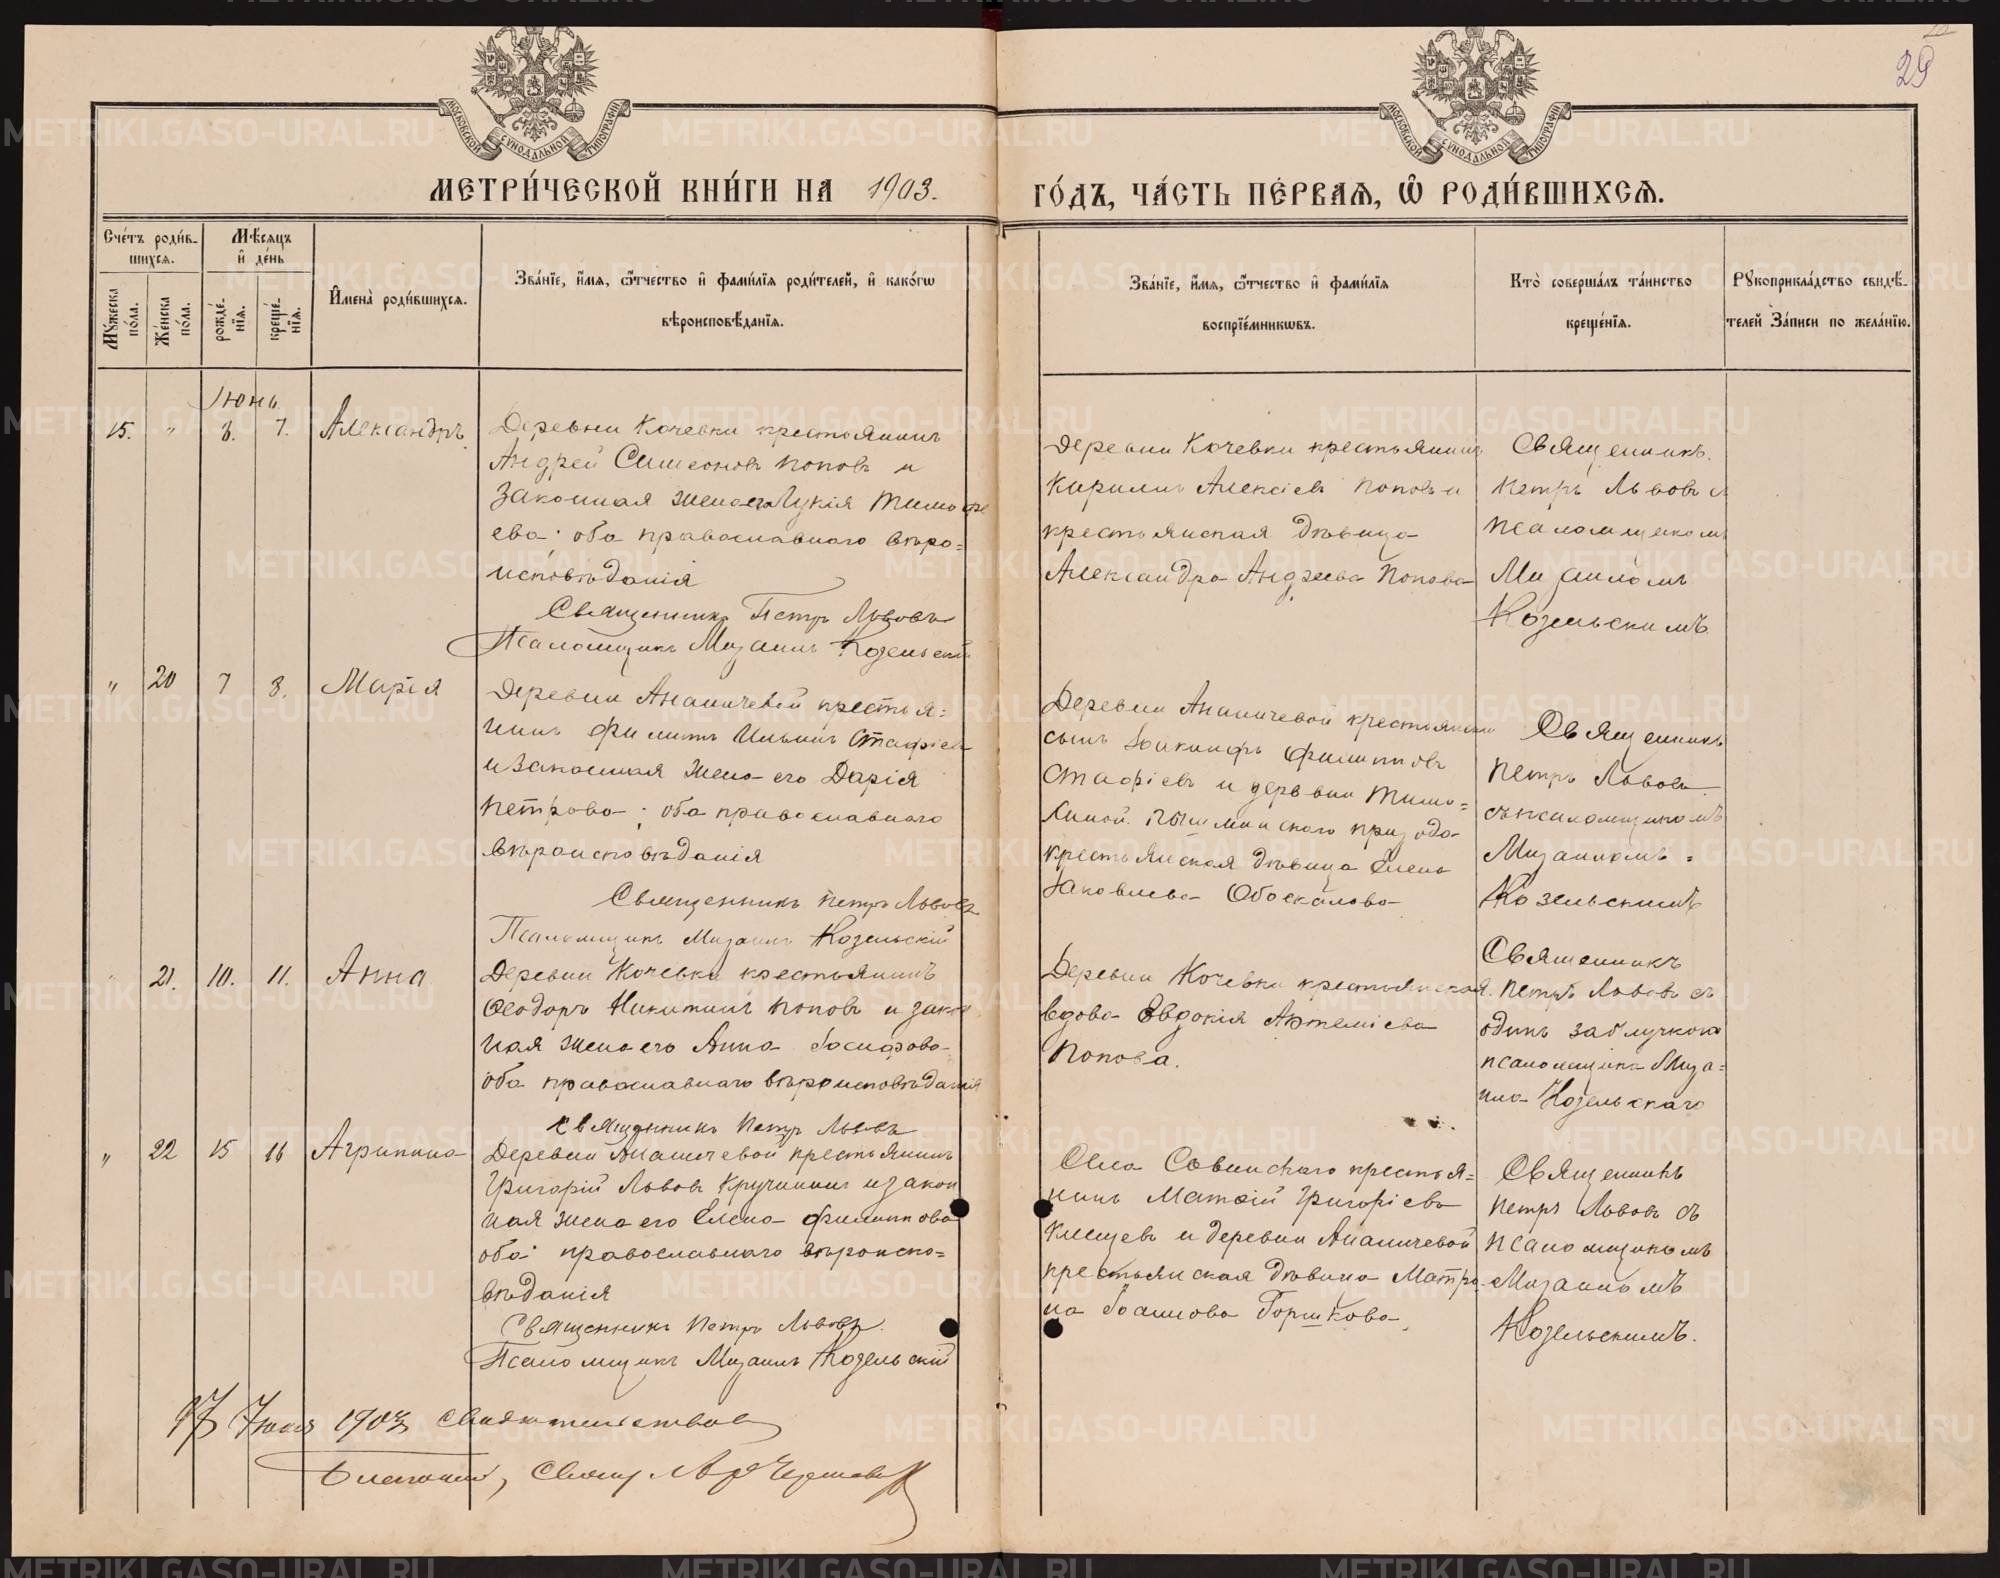 29
МОСКОВСКОЙ СѴНОДАЛЬНОЙ ТИПОГРАФІИ
МОСКОВСКОЙ СѴНОДАЛЬНОЙ ТИПОГРАФІИ
МЕТРИ́ЧЕСКОЙ КНИ́ГИ НА 1903.
ГО́ДЪ, ЧА́СТЬ ПЕ́РВАѦ, Ѽ РОДИ́ВШИХСѦ.
Сче́тъ роди́в-
шихсѧ.
Мꙋ́жеска по́ла.
Же́нска по́ла.
Мѣ́сѧцъ
и҆ де́нь
рожде́-нїѧ.
креще́-нїѧ.
И҆мена̀ роди́вшихсѧ.
Зва́нїе, и҆́мѧ, ѻ҆́тчество и҆ фами́лїѧ роди́телей, и҆ како́гѡ
вѣроисповѣ́данїѧ.
Зва́нїе, и҆́мѧ, ѻ҆́тчество и҆ фами́лїѧ
воспрїе́мникѡвъ.
Кто̀ соверша́лъ та́инство
креще́нїѧ.
Рꙋкоприкла́дство свидѣ́-
телей за́писи по жела́нїю.
Іюнь
15. " 6. 7. Александръ
Деревни Кочевки крестьянинъ
Андрей Симеоновъ Поповъ и
законная жена его Лукія Тимофе
ева: оба православнаго вѣро=
исповѣданія
Священникъ Петръ Львовъ
Псаломщикъ Михаилъ Козельскій
Деревни Кочевки крестьянинъ
Кириллъ Алексіевъ Поповъ и
крестьянская дѣвица
Александра Андреева Попова
Священникъ
Петръ Львовъ съ
псаломщикомъ
Михаиломъ
Козельскимъ
" 20 7 8. Марія
Деревни Ананичевой крестья=
нинъ Филиппъ Ильинъ Стафіевъ
и законная жена его Дарія
Петрова; оба православнаго
вѣроисповѣданія
Священникъ Петръ Львовъ
Псаломщикъ Михаилъ Козельскій
Деревни Ананичевой крестьянскій
сынъ Іакинфъ Филипповъ
Стафіевъ и деревни Тимо=
хиной Пышминскаго прихода
крестьянская дѣвица Елена
Іаковлева Обоскалова
Священникъ
Петръ Львовъ
съ псаломщикомъ
Михаиломъ
Козельскимъ
" 21. 10. 11. Анна
Деревни Кочевки крестьянинъ
Ѳеодоръ Никитинъ Поповъ и закон
ная жена его Анна Іосифова
оба православнаго вѣроисповѣданія
Священникъ Петръ Львовъ
Деревни Кочевки крестьянская
вдова Евдокія Артеміева
Попова.
Священникъ
Петръ Львовъ
одинъ за отлучкою
псаломщика Миха=
ила Козельскаго
" 22 15 16 Агрипина
Деревни Ананичевой крестьянинъ
Григорій Львовъ Кручининъ и закон
ная жена его Елена Филиппова
оба православнаго вѣроиспо=
вѣданія
Священникъ Петръ Львовъ.
Псаломщикъ Михаилъ Козельскій
Села Савинскаго крестья=
нинъ Матѳій Григоріевъ
Клещевъ и деревни Ананичевой
крестьянская дѣвица Матро
на Іоаннова Горшкова
Священникъ
Петръ Львовъ съ
псаломщикомъ
Михаиломъ
Козельскимъ.
Іюля 1903 свидѣтельствовалъ